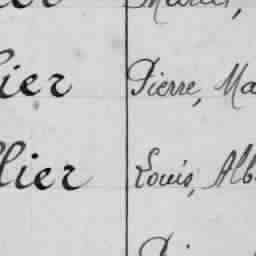 ier Pierre, Ma
llier Louis, Alb